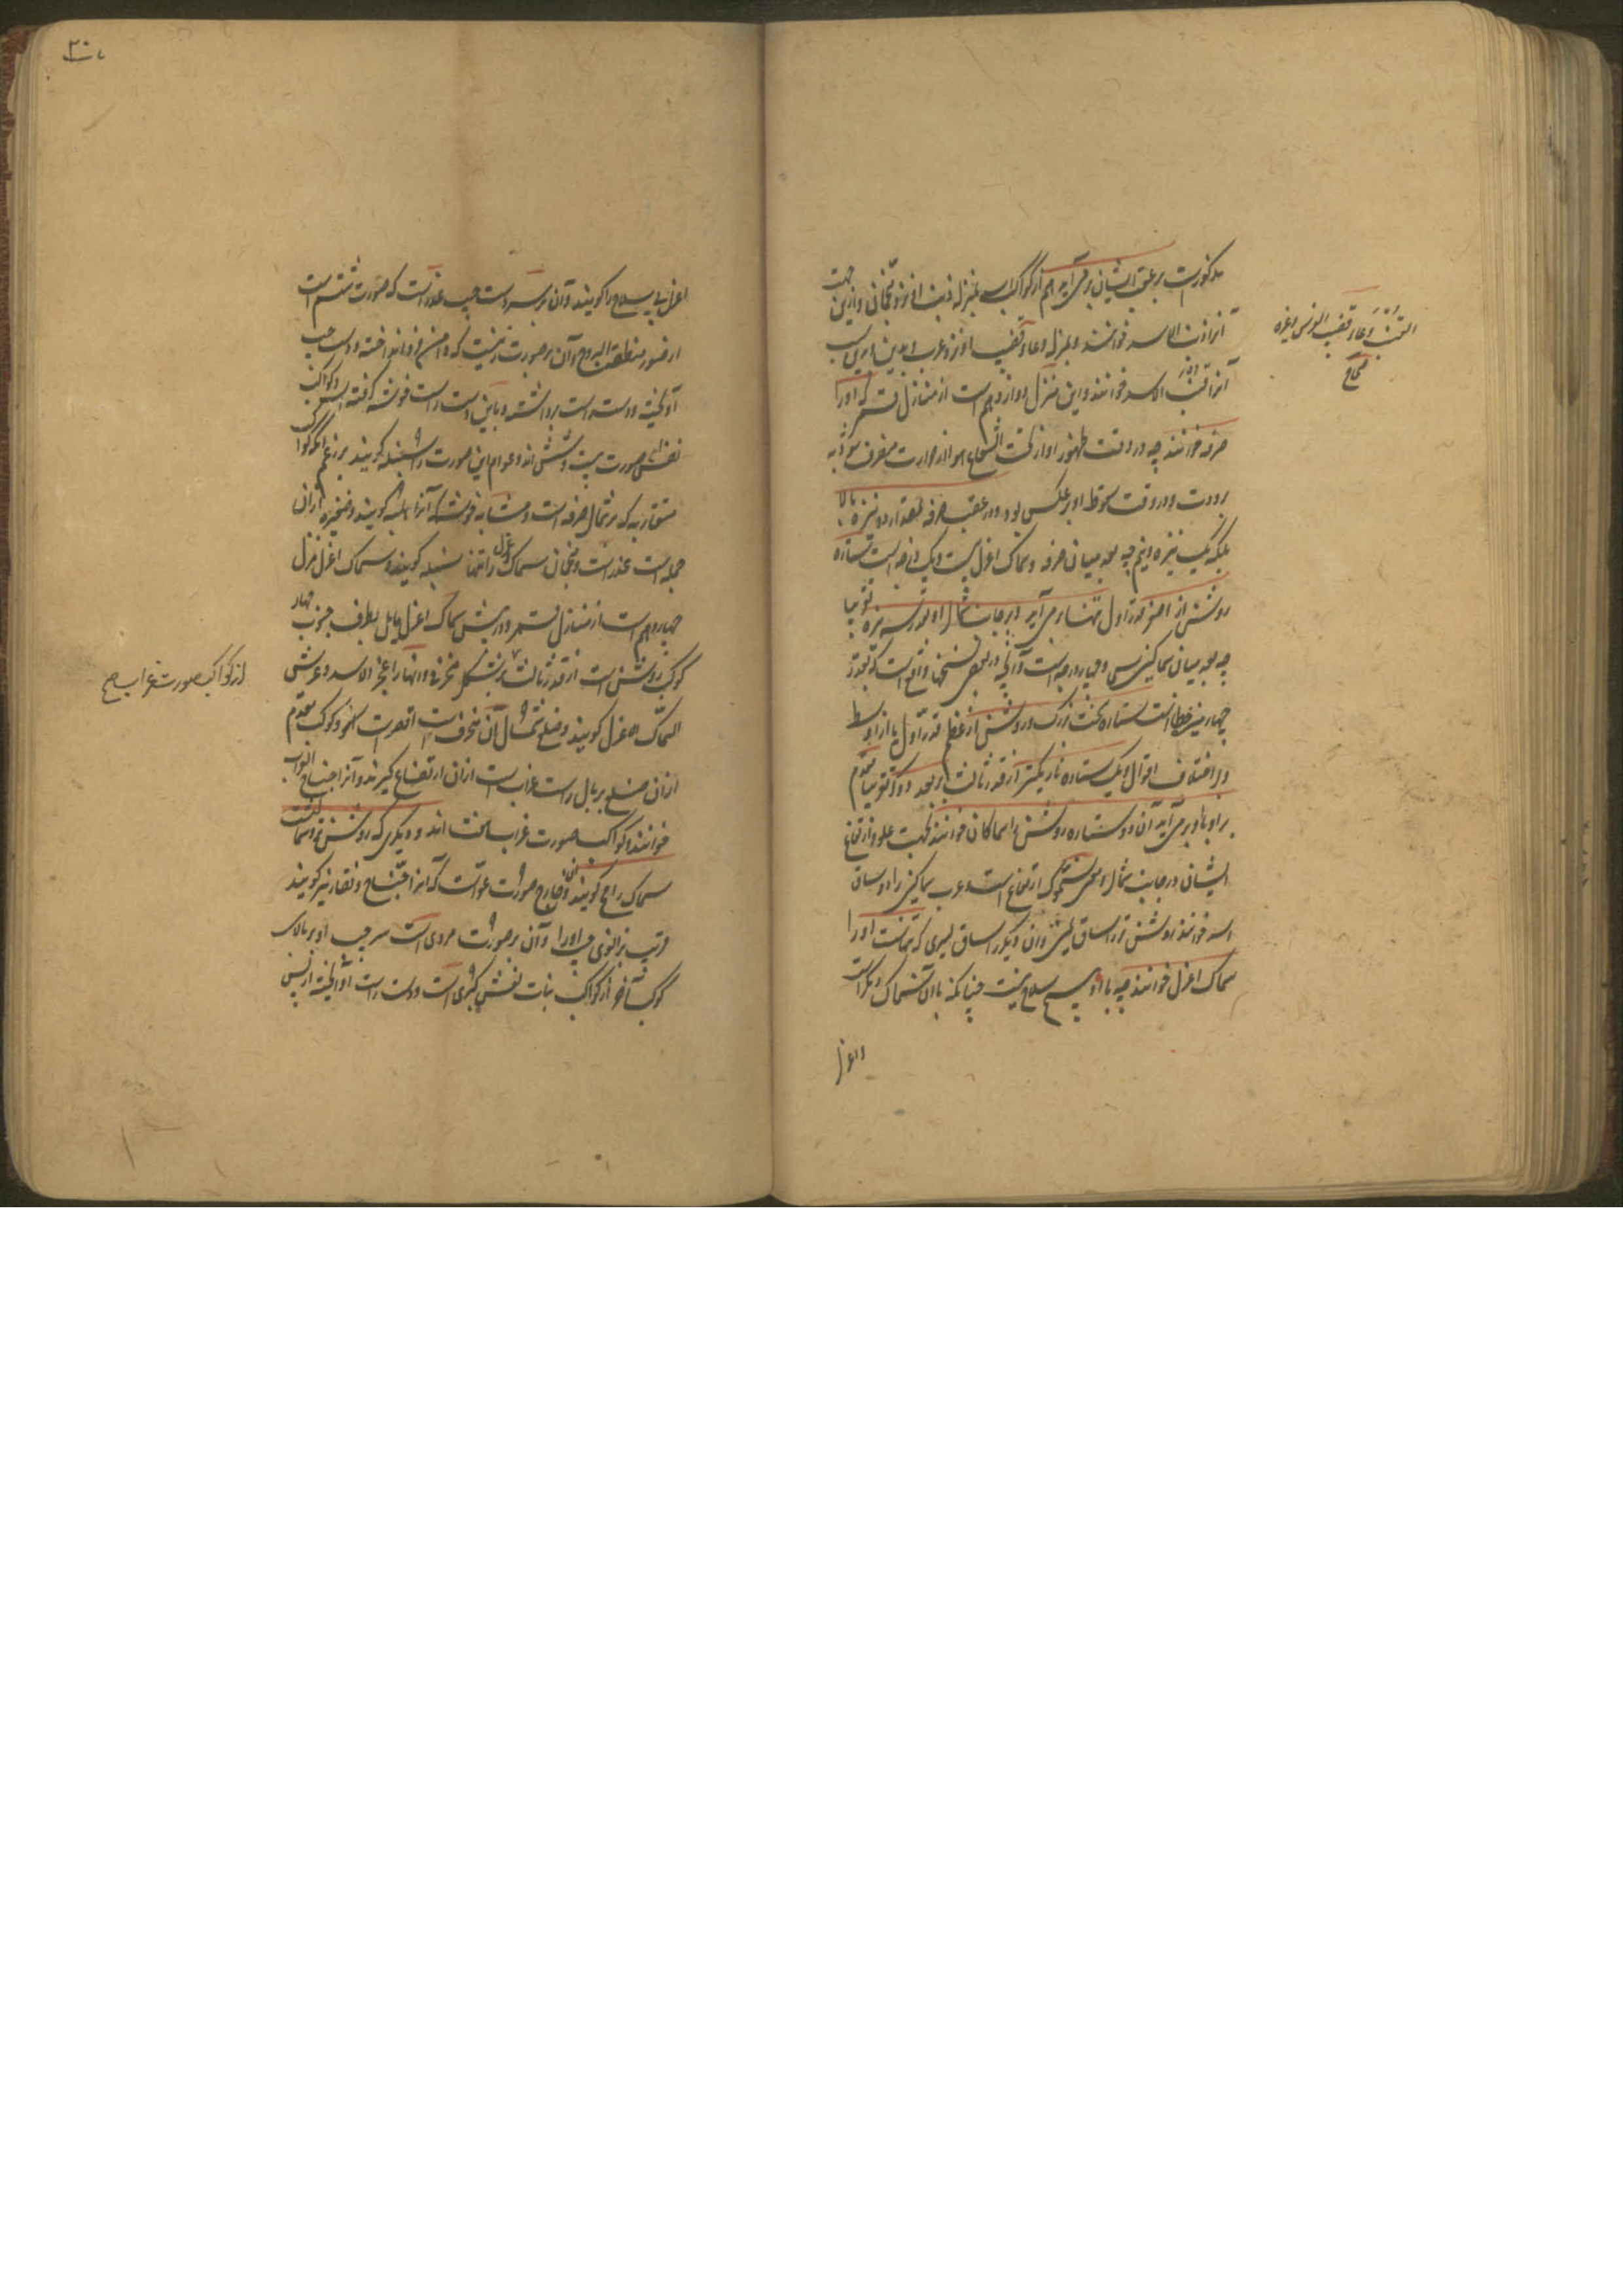 مذکورست بر عقب ایشان برمی‌آید هم از کواکب اسد بمنزله ذنب او نزد منجمان و ازین جهت
آنرا ذنب الاسد خوانند و بمنزله وعاء قضیب او نزد عرب و بدین سبب
آنرا قنب الاسد خوانند و این منزل دوازدهم است از منازل قمر که او را
صرفه خوانند چه در وقت ظهور او از تحت الشعاع هوا از حرارت منصرف شود به
برودت و در وقت سقوط او برعکس بود و در عقب صرفه بمقدار دو نیزه بالا
بلکه یک نیزه و نیم چه بعد میان صرفه و سماک اعزل بیست و یک درجه است ستاره
روشن از اصغر قدر اول تنها برمی‌آید و بر جانب شمال او بقدر سه نیزه تقریبا
چه بعد میان سماکین سی و چهار درجه است و آنچه در بعضی نسخها واقع است که بقدر
چهار نیزه خطا است ستاره سخت بزرگ و روشن از اعظم قدر اول یا از اوسط
بر اختلاف اقوال و یک ستاره تاریکتر از قدر ثالث بر بعد دو گز تقریبا مقدم
بر او با او برمی‌آید آن دو ستاره روشن را سماکان خوانند بجهت علو و ارتفاع
ایشان در جانب شمال و معنی سموک ارتفاع است و عرب سماکین را دو ساق
اسد خوانند روشن تر را ساق یمنی و آن دیگر را ساق یسری که تنهاست او را
سماک اعزل خوانند چه با او هیچ سلاح نیست چنانکه با آن سماک دیگر است
و اعزل
القنب وعاء قضیب الفرس و غیره
صحاح
۳۰
اعزل بی سلاح را گویند و آن بر سر دست چپ عذرا است که صورت ششم است
از صور منطقة البروج و آن بر صورت زنیست که دامن فرو انداخته و دست چپ
آویخته و دست راست برداشته و باین دست راست خوشه گرفته است و کواکب
نفس صورت بیست و شش اند و عوام این صورت را سنبله گویند بر زعم آنکه کواکب
متقاربه که بر شمال صرفه است و مشابه خوشه که آنرا هلبه گویند و ضفیره از آن
جمله است عذرا است و منجمان سماک اعزل را تنها سنبله گویند و سماک اعزل منزل
چهاردهم است از منازل قمر و در پیش سماک اعزل مایل بطرف جنوب چهار
کوکب روشن است از قدر ثالث بر شکل منحرفی و آنها را عجز الاسد و عرش
السماک الاعزل گویند و ضلع شمال آن منحرف است اقصر است و کوکب مقدم
از آن ضلع بر بال راست غراب است از آن ارتفاع گیرند و آنرا جناح الغراب
خوانند و کواکب صورت غراب هفت اند و دیگری که روشن تر و شمالیست
سماک رامح گویند و آن خارج صورت عوا است که آنرا صیاح و نقار نیز گویند
قریب بزانوی چپ او را و آن بر صورت مردی است سر چپ او بر بالای
کوکب آخر از کواکب بنات نعش کبری است و دست راست آویخته از پس
از کواکب صورت غراب صح